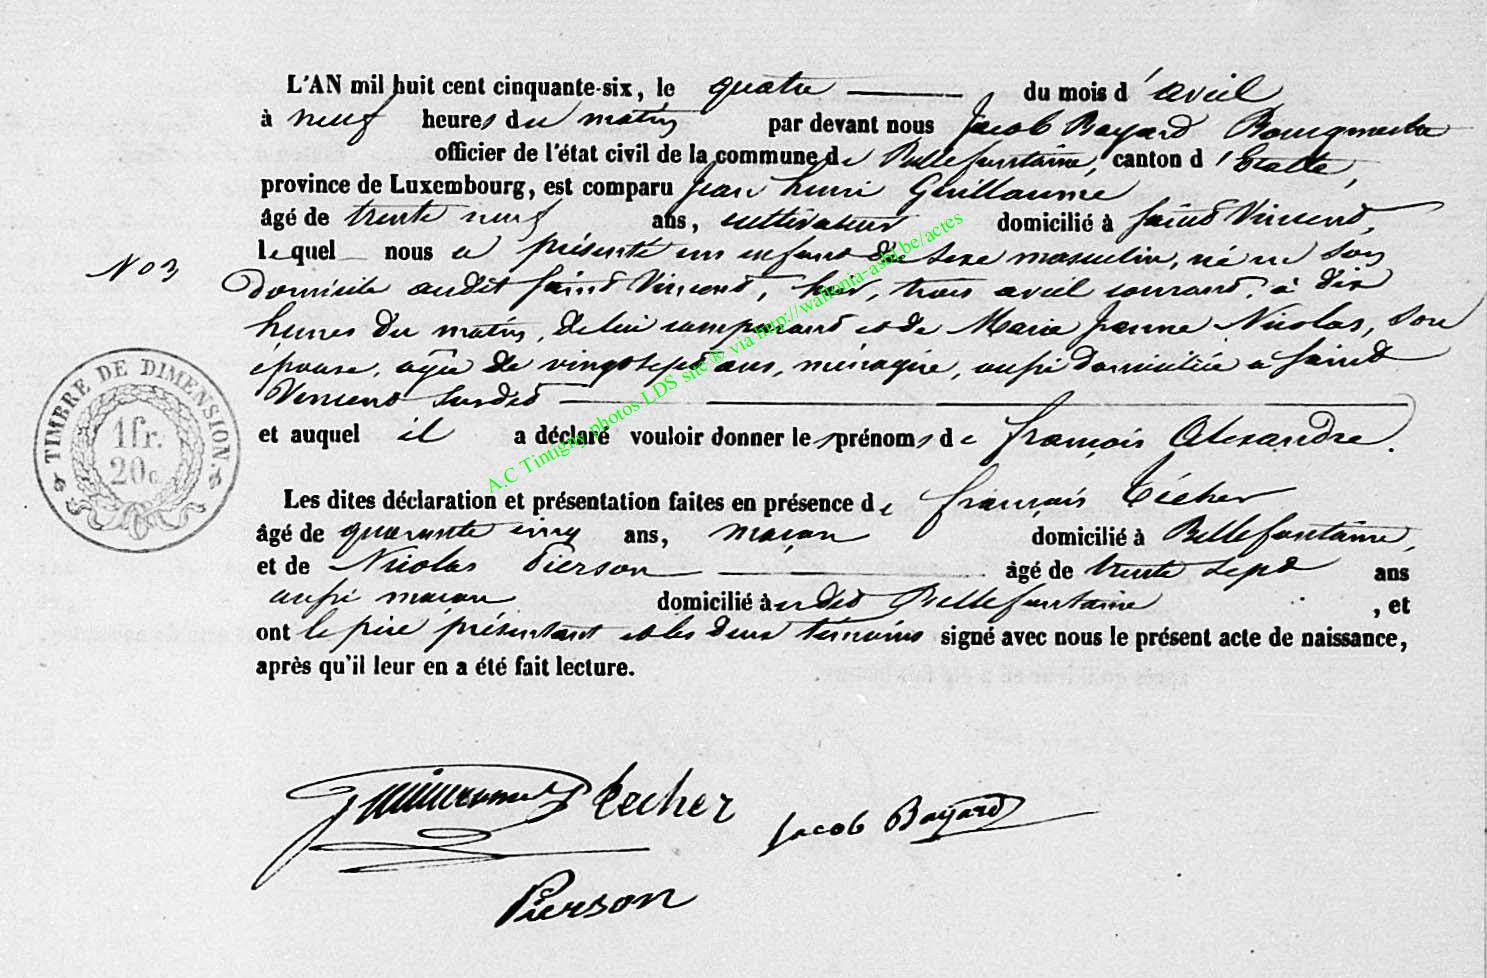 L'AN mil huit cent cinquante-six, le quatre du mois d'avril
à neuf heures du matin par devant nous Jacob Bayard Bourgmestre
officier de l'état civil de la commune de Bellefontaine, canton d'Etalle,
province de Luxembourg, est comparu Jean henri Guillaume
âgé de trente neuf ans, cultivateur domicilié à Saint Vincent,
lequel nous a présenté un enfant de sexe masculin, né en son
No 3
domicile audit Saint Vincent, hier, trois avril courant, à dix
heures du matin, de lui comparant et de Marie Jeanne Nicolas, son
épouse, agée de vingt sept ans, ménagère, aussi domiciliée a Saint
Vincent susdit
et auquel il a déclaré vouloir donner les prénoms de françois Alexandre.
Les dites déclaration et présentation faites en présence de françois Técher
âgé de quarante cinq ans, maçon domicilié à Bellefontaine,
et de Nicolas Pierson âgé de trente sept ans
aussi maçon domicilié à udit Bellefontaine, et
ont le père présentant et les deux témoins signé avec nous le présent acte de naissance,
après qu'il leur en a été fait lecture.
TIMBRE DE DIMENSION.
1 fr.
20 c.
A.C Tintigny photos LDS site © via http://wallonia-asbl.be/actes
Guillaume Techer Jacob Bayard
Pierson